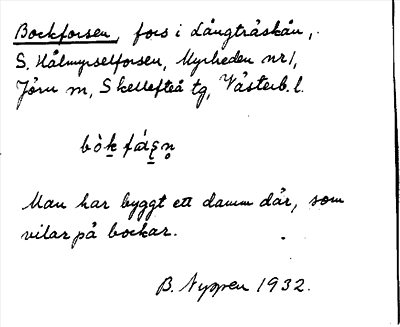 Bockforsen, fors i Långträskån,
S. Hålmyrselforsen, Myrheden nr 1,
Jörn sn, Skellefteå tg, Västerb. l.
Man har byggt ett damm där, som
vilar på bockar.
B. Nygren 1932.